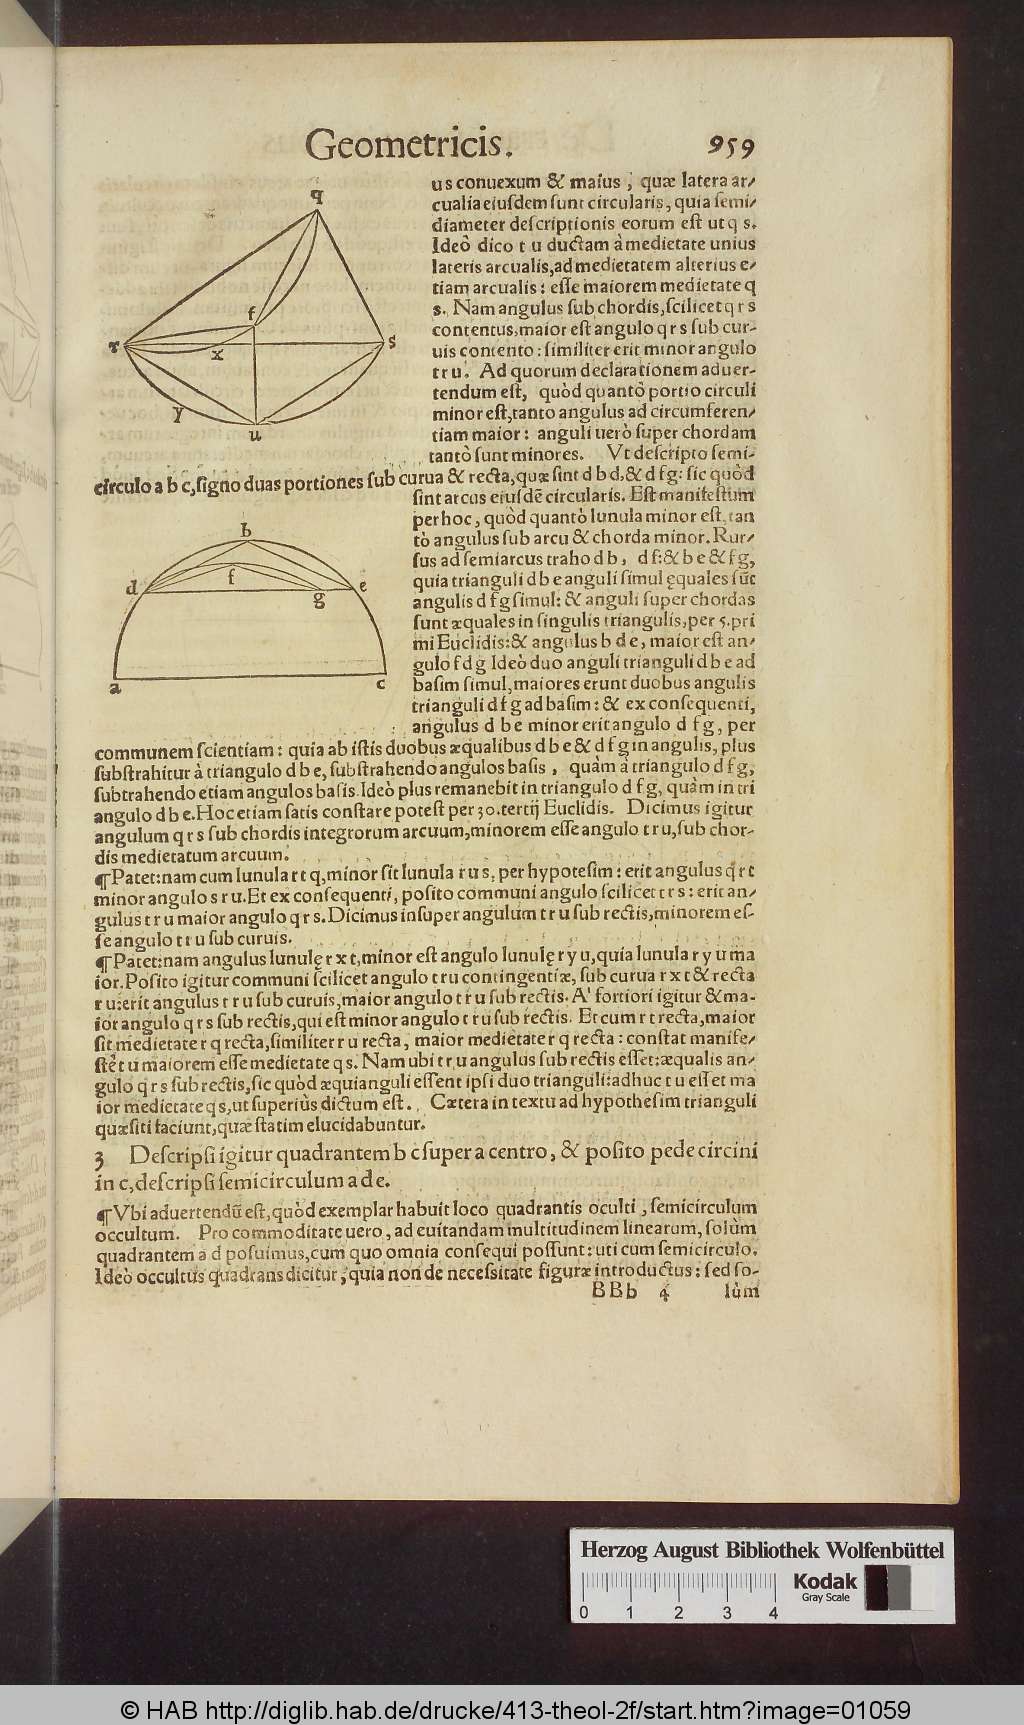 Geometricis. 959
us conuexum & maius, quæ latera ar-
cualia eiusdem sunt circularis, quia semi-
diameter descriptionis eorum est ut q s.
Ideò dico t u ductam à medietate unius
lateris arcualis, ad medietatem alterius e-
tiam arcualis: esse maiorem medietate q
s. Nam angulus sub chordis, scilicet q r s
contentus, maior est angulo q r s sub cur-
uis contento: similiter erit minor angulo
t r u. Ad quorum declarationem aduer-
tendum est, quòd quantò portio circuli
minor est, tanto angulus ad circumferen-
tiam maior: anguli uerò super chordam
tantò sunt minores. Vt descripto semi-
circulo a b c, signo duas portiones sub curua & recta, quæ sint d b d. & d f g: sic quòd
sint arcus eiusdē circularis. Est manifestum
per hoc, quòd quantò lunula minor est, tan
tò angulus sub arcu & chorda minor. Rur-
sus ad semiarcus traho d b, d f: & b e & f g,
quia trianguli d b e anguli simul ęquales sūt
angulis d f g simul: & anguli super chordas
sunt æquales in singulis triangulis, per 5. pri
mi Euclidis: & angulus b d e, maior est an-
gulo f d g Ideò duo anguli trianguli d b e ad
basim simul, maiores erunt duobus angulis
trianguli d f g ad basim: & ex consequenti,
angulus d b e minor erit angulo d f g, per
communem scientiam: quia ab istis duobus æqualibus d b e & d f g in angulis, plus
substrahitur à triangulo d b e, substrahendo angulos basis, quàm à triangulo d f g,
subtrahendo etiam angulos basis. Ideò plus remanebit in triangulo d f g, quàm in tri
angulo d b e. Hoc etiam satis constare potest per 30. tertij Euclidis. Dicimus igitur
angulum q r s sub chordis integrorum arcuum, minorem esse angulo t r u, sub chor-
dis medietatum arcuum.
¶ Patet: nam cum lunula r t q, minor sit lunula r u s, per hypotesim: erit angulus q r t
minor angulo s r u. Et ex consequenti, posito communi angulo scilicet t r s: erit an-
gulus t r u maior angulo q r s. Dicimus insuper angulum t r u sub rectis, minorem es-
se angulo t r u sub curuis.
¶ Patet: nam angulus lunulę r x t, minor est angulo lunulę r y u, quia lunula r y u ma
ior. Posito igitur communi scilicet angulo t r u contingentiæ, sub curua r x t & recta
r u: erit angulus t r u sub curuis, maior angulo t r u sub rectis. A' fortiori igitur & ma-
ior angulo q r s sub rectis, qui est minor angulo t r u sub rectis. Et cum r t recta, maior
sit medietate r q recta, similiter r u recta, maior medietate r q recta: constat manife-
stè t u maiorem esse medietate q s. Nam ubi t r u angulus sub rectis esset: æqualis an-
gulo q r s sub rectis, sic quòd æquianguli essent ipsi duo trianguli: adhuc t u esset ma
ior medietate q s, ut superiùs dictum est. Cætera in textu ad hypothesim trianguli
quæsiti faciunt, quæ statim elucidabuntur.
3 Descripsi igitur quadrantem b c super a centro, & posito pede circini
in c, descripsi semicirculum a d e.
¶ Vbi aduertendū est, quòd exemplar habuit loco quadrantis oculti, semicirculum
occultum. Pro commoditate uero, ad euitandam multitudinem linearum, solùm
quadrantem a d posuimus, cum quo omnia consequi possunt: uti cum semicirculo.
Ideò occultus quadrans dicitur, quia non de necessitate figuræ introductus: sed so-
BBb 4 lùm
q
f
r
s
x
y
u
b
f
d
e
g
a
c
Herzog August Bibliothek Wolfenbüttel
0 1 2 3 4
Kodak
Gray Scale
© HAB http://diglib.hab.de/drucke/413-theol-2f/start.htm?image=01059